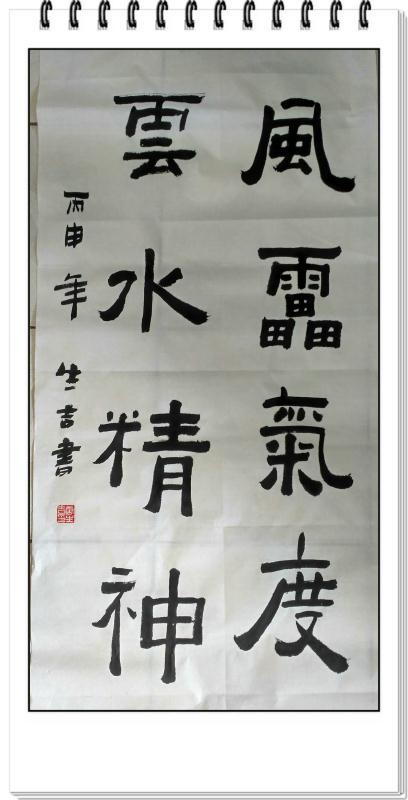 風靁氣度
雲水精神
丙申年 生吉書